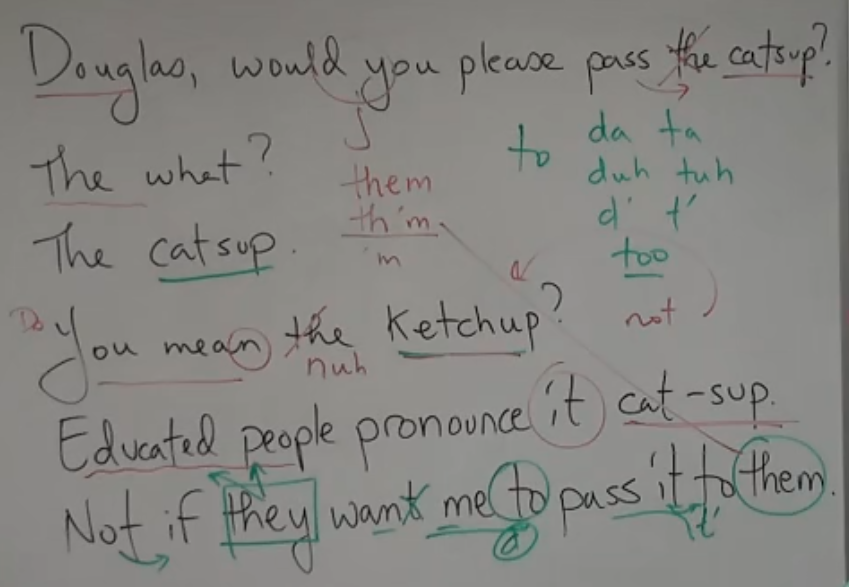 Douglas, would you please pass the catsup?
J
The what?
them
th'm
'm
to
da ta
duh tuh
d' t'
too
not
The catsup.
Do You mean the Ketchup?
nuh
Educated people pronounce it cat-sup.
Not if they want me to pass it to them.
d
't'